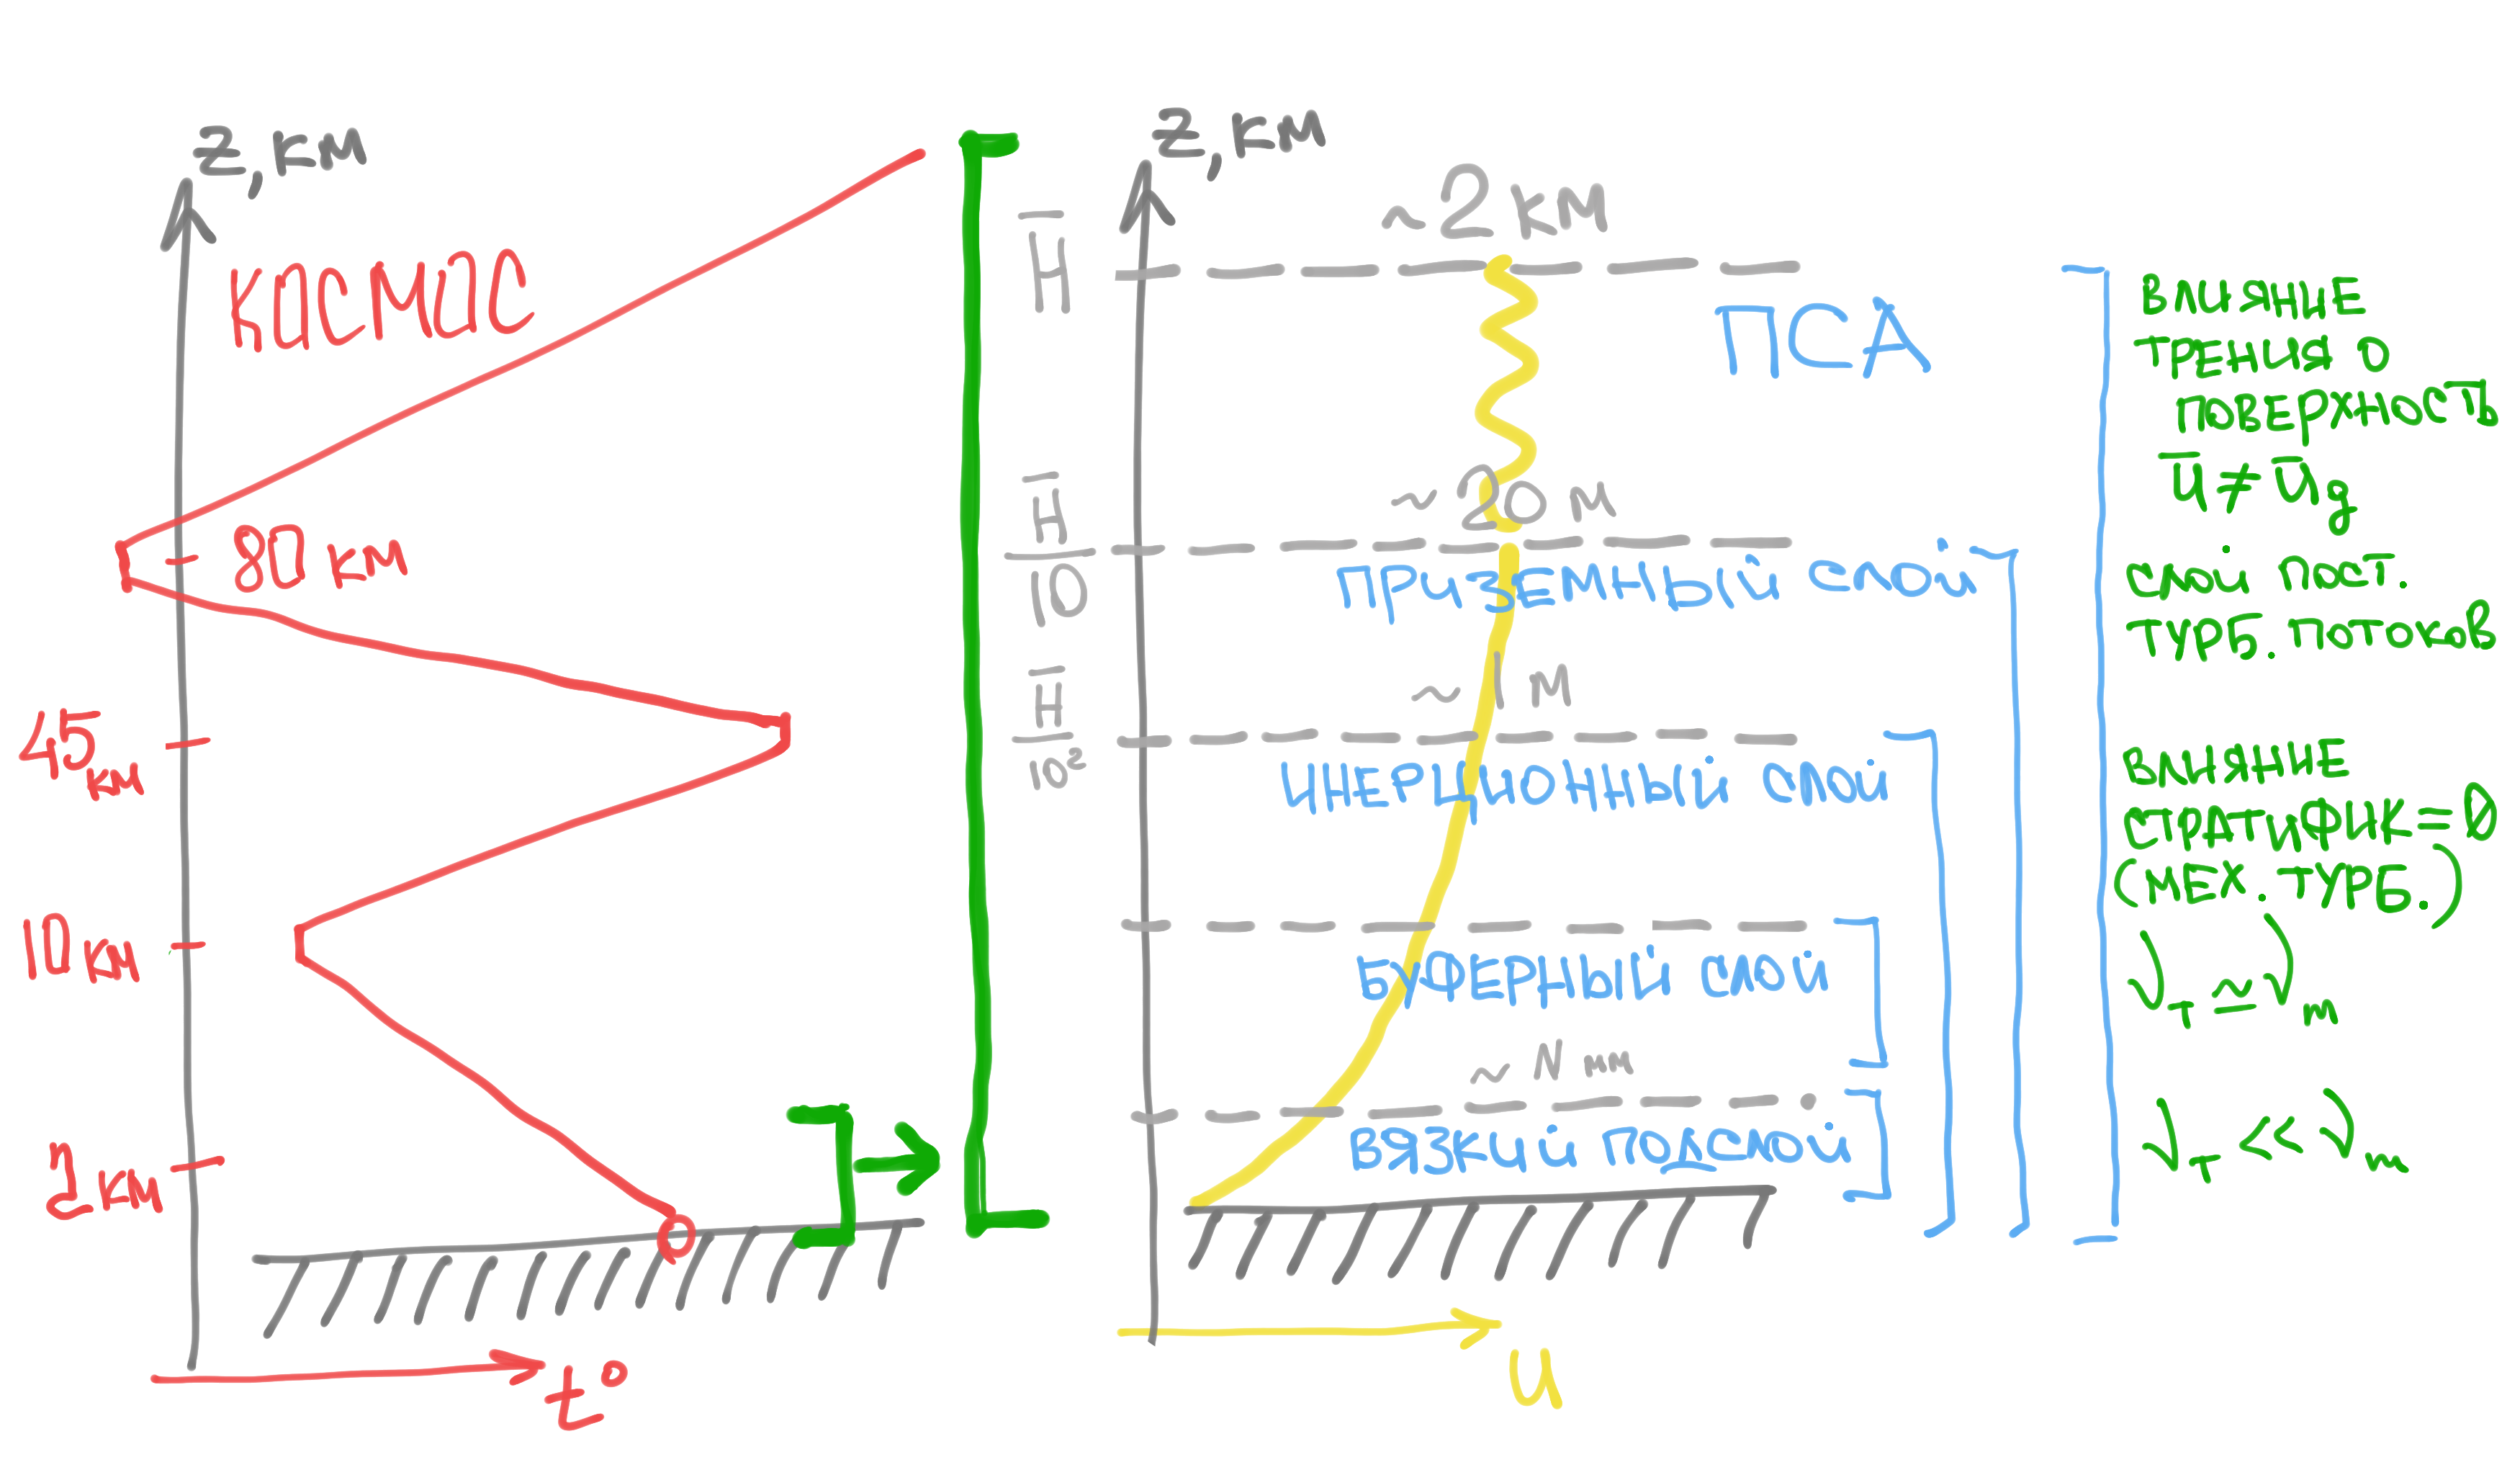 z, км
КОСМОС
80 км
45 км
10 км
2 км
t°
z, км
H̅
~2 км
ПСА
H̅/10
~20 м
Приземный слой
H̅/10²
~1 м
Инерционный слой
Буферный слой
~N мм
Вязкий подслой
u
Влияние
трения о
поверхность
U̅ ≠ U̅g
Слой пост.
турб. потоков
Влияние
стратифик=0
(мех. турб.)
νT ≃ νm
νT << νm